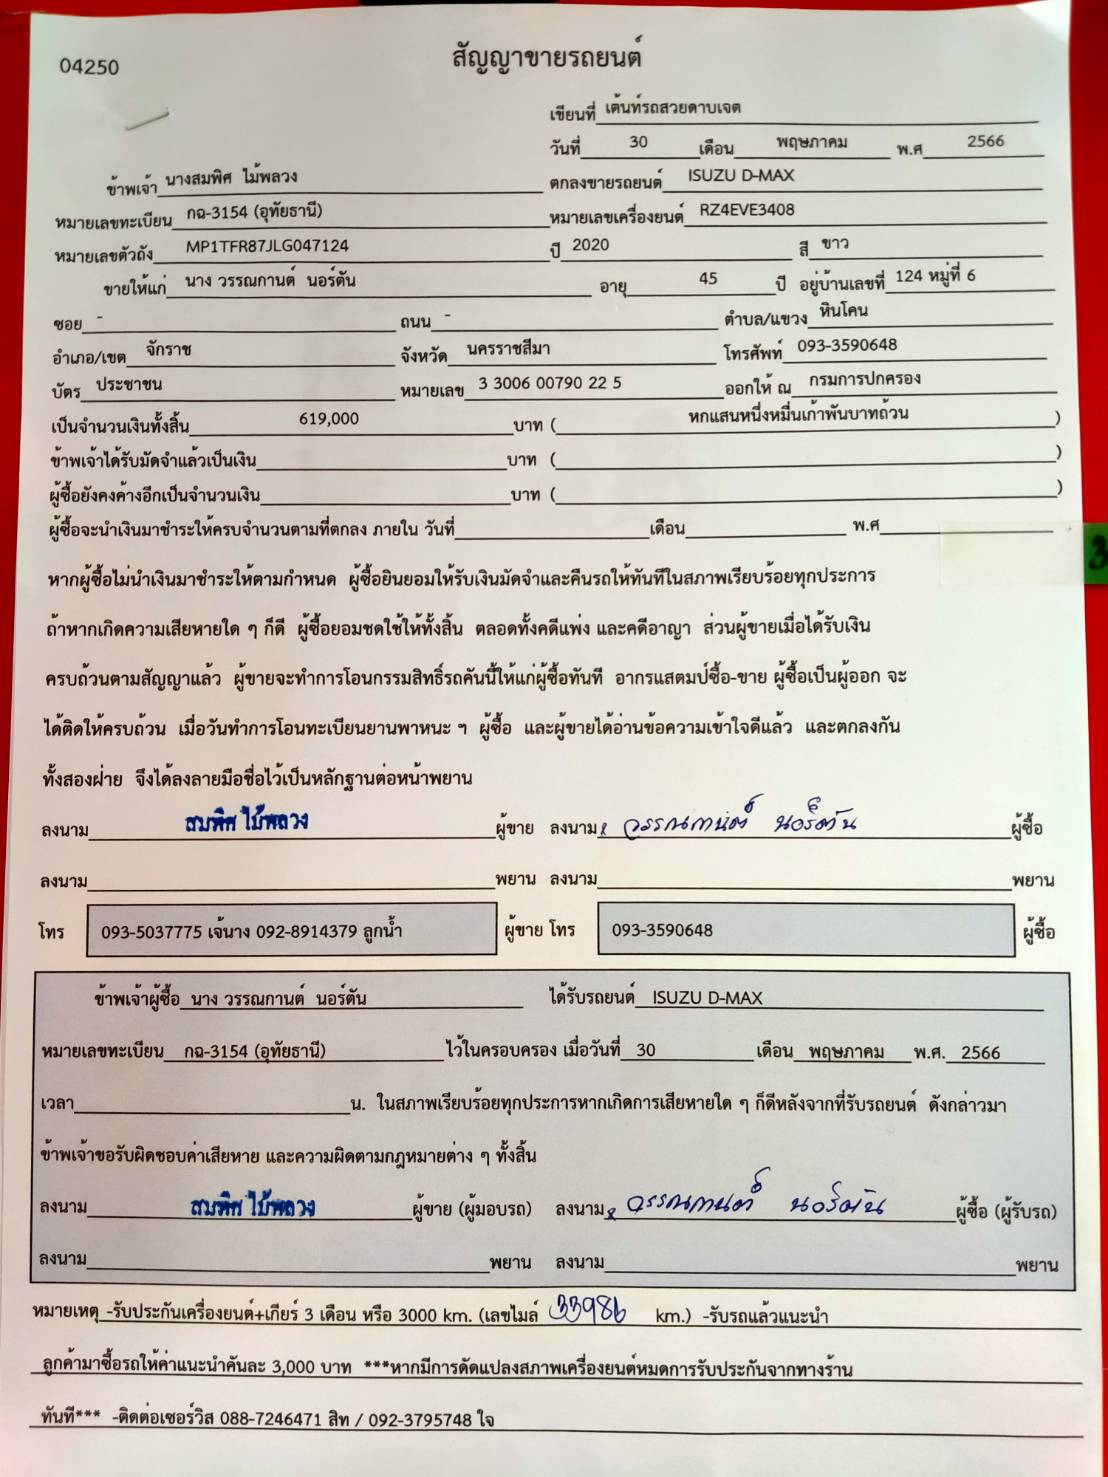 04250
สัญญาขายรถยนต์
เขียนที่ เต้นท์รถสวยดาบเจต
วันที่ 30 เดือน พฤษภาคม พ.ศ 2566
ข้าพเจ้า นางสมพิศ ไม้พลวง ตกลงขายรถยนต์ ISUZU D-MAX
หมายเลขทะเบียน กฉ-3154 (อุทัยธานี) หมายเลขเครื่องยนต์ RZ4EVE3408
หมายเลขตัวถัง MP1TFR87JLG047124 ปี 2020 สี ขาว
ขายให้แก่ นาง วรรณกานต์ นอร์ตัน อายุ 45 ปี อยู่บ้านเลขที่ 124 หมู่ที่ 6
ซอย - ถนน - ตำบล/แขวง หินโคน
อำเภอ/เขต จักราช จังหวัด นครราชสีมา โทรศัพท์ 093-3590648
บัตร ประชาชน หมายเลข 3 3006 00790 22 5 ออกให้ ณ กรมการปกครอง
เป็นจำนวนเงินทั้งสิ้น 619,000 บาท ( หกแสนหนึ่งหมื่นเก้าพันบาทถ้วน )
ข้าพเจ้าได้รับมัดจำแล้วเป็นเงิน บาท ( )
ผู้ซื้อยังคงค้างอีกเป็นจำนวนเงิน บาท ( )
ผู้ซื้อจะนำเงินมาชำระให้ครบจำนวนตามที่ตกลง ภายใน วันที่ เดือน พ.ศ
3
หากผู้ซื้อไม่นำเงินมาชำระให้ตามกำหนด ผู้ซื้อยินยอมให้รับเงินมัดจำและคืนรถให้ทันทีในสภาพเรียบร้อยทุกประการ
ถ้าหากเกิดความเสียหายใด ๆ ก็ดี ผู้ซื้อยอมชดใช้ให้ทั้งสิ้น ตลอดทั้งคดีแพ่ง และคดีอาญา ส่วนผู้ขายเมื่อได้รับเงิน
ครบถ้วนตามสัญญาแล้ว ผู้ขายจะทำการโอนกรรมสิทธิ์รถคันนี้ให้แก่ผู้ซื้อทันที อากรแสตมป์ซื้อ-ขาย ผู้ซื้อเป็นผู้ออก จะ
ได้ติดให้ครบถ้วน เมื่อวันทำการโอนทะเบียนยานพาหนะ ฯ ผู้ซื้อ และผู้ขายได้อ่านข้อความเข้าใจดีแล้ว และตกลงกัน
ทั้งสองฝ่าย จึงได้ลงลายมือชื่อไว้เป็นหลักฐานต่อหน้าพยาน
ลงนาม สมพิศ ไม้พลวง ผู้ขาย ลงนาม วรรณกานต์ นอร์ตัน ผู้ซื้อ
ลงนาม พยาน ลงนาม พยาน
โทร 093-5037775 เจ้นาง 092-8914379 ลูกน้ำ ผู้ขาย โทร 093-3590648 ผู้ซื้อ
ข้าพเจ้าผู้ซื้อ นาง วรรณกานต์ นอร์ตัน ได้รับรถยนต์ ISUZU D-MAX
หมายเลขทะเบียน กฉ-3154 (อุทัยธานี) ไว้ในครอบครอง เมื่อวันที่ 30 เดือน พฤษภาคม พ.ศ. 2566
เวลา น. ในสภาพเรียบร้อยทุกประการหากเกิดการเสียหายใด ๆ ก็ดีหลังจากที่รับรถยนต์ ดังกล่าวมา
ข้าพเจ้าขอรับผิดชอบค่าเสียหาย และความผิดตามกฎหมายต่าง ๆ ทั้งสิ้น
ลงนาม สมพิศ ไม้พลวง ผู้ขาย (ผู้มอบรถ) ลงนาม วรรณกานต์ นอร์ตัน ผู้ซื้อ (ผู้รับรถ)
ลงนาม พยาน ลงนาม พยาน
หมายเหตุ -รับประกันเครื่องยนต์+เกียร์ 3 เดือน หรือ 3000 km. (เลขไมล์ 33986 km.) -รับรถแล้วแนะนำ
ลูกค้ามาซื้อรถให้ค่าแนะนำคันละ 3,000 บาท ***หากมีการดัดแปลงสภาพเครื่องยนต์หมดการรับประกันจากทางร้าน
ทันที*** -ติดต่อเซอร์วิส 088-7246471 สิท / 092-3795748 ใจ